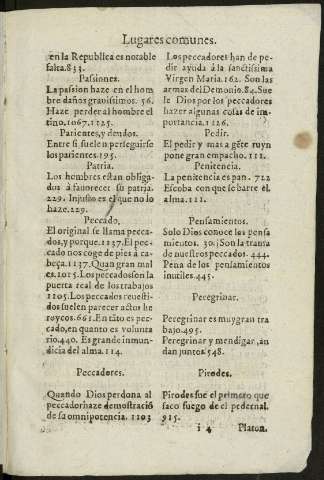 Lugares comunes.
en la Republica es notable
falta. 833.
Passiones.
La passion haze en el hom
bre daños grauissimos. 56.
Haze perder al hombre el
tino. 1067. 1125.
Parientes, y deudos.
Entre si suelen perseguirse
los parientes. 195.
Patria.
Los hombres estan obliga
dos à fauorecer su patria.
229. Injusto es el que no lo
haze. 229.
Peccado.
El original se llama pecca-
do, y porque. 1137. El pec-
cado nos coge de pies à ca-
beça. 1137. Quan gran mal
es. 1015. Los peccados son la
puerta real de los trabajos
1105. Los peccados reuesti-
dos suelen parecer actos he
roycos. 661. En tãto es pec-
cado, en quanto es volunta
rio. 440. Es grande inmun-
dicia del alma. 114.
Peccadores.
Quando Dios perdona al
peccador haze demostració
de su omnipotencia. 1103
Los peccadores han de pe-
dir ayuda à la sanctissima
Virgen Maria. 162. Son las
armas del Demonio. 84. Sue
le Dios por los peccadores
hazer algunas cosas de im-
portancia. 1126.
Pedir.
El pedir y mas a gẽte ruyn
pone gran empacho. 111.
Penitencia.
La penitencia es pan. 722
Escoba con que se barre el
alma. 111.
Pensamientos.
Solo Dios conoce los pensa
mientos. 30. Son la transa
de nuestros peccados. 444.
Pena de los pensamientos
inutiles. 445.
Peregrinar.
Peregrinar es muy gran tra
bajo. 495.
Peregrinar y mendigar, an
dan juntos. 548.
Pirodes.
Pirodes fue el primero que
saco fuego de el pedernal.
915.
i 4 Platon.